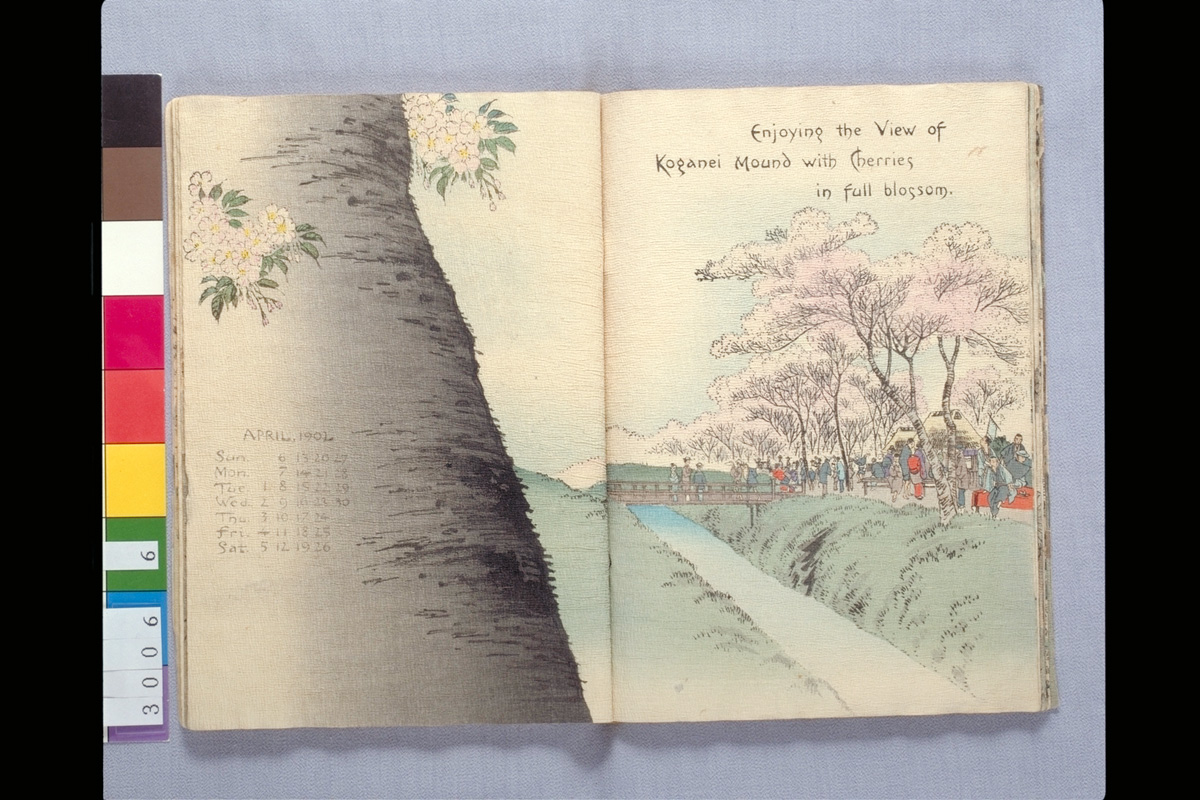 APRIL, 1902
Sun. 6 13 20 27
Mon. 7 14 21 28
Tue. 1 8 15
Wed. 2 9 16 30
Thu. 3 10
Fri. 4 11 18 25
Sat. 5 12 19 26
Enjoying the View of
Koganei Mound with Cherries
in full blossom.
6
3006